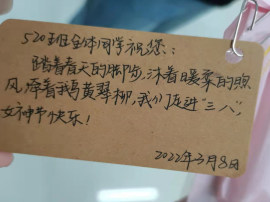 520班全体同学祝您：
踏着春天的脚步，沐着暖柔的煦
风，牵着我鹅黄翠柳，我们走进“三八”，
女神节快乐！
2022年3月8日